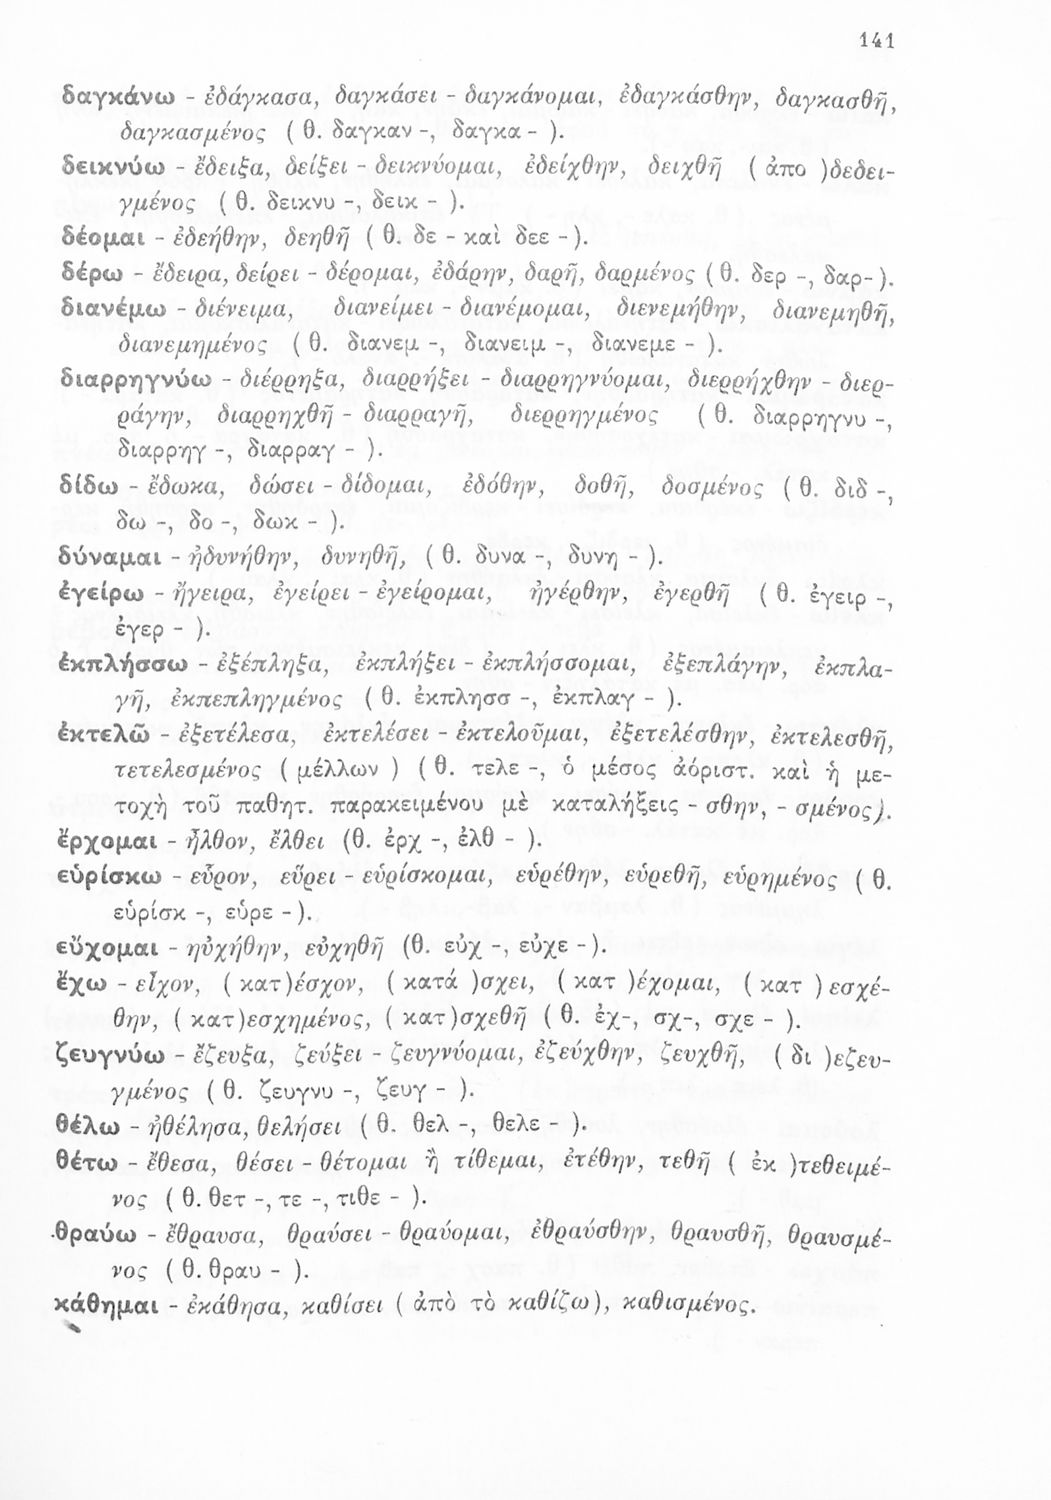 141
δαγκάνω - ἐδάγκασα, δαγκάσει - δαγκάνομαι, ἐδαγκάσθην, δαγκασθῆ,
δαγκασμένος ( θ. δαγκαν -, δαγκα - ).
δεικνύω - ἔδειξα, δείξει - δεικνύομαι, ἐδείχθην, δειχθῆ ( ἀπο )δεδει-
γμένος ( θ. δεικνυ -, δεικ - ).
δέομαι - ἐδεήθην, δεηθῆ ( θ. δε - καὶ δεε - ).
δέρω - ἔδειρα, δείρει - δέρομαι, ἐδάρην, δαρῆ, δαρμένος ( θ. δερ -, δαρ- ).
διανέμω - διένειμα, διανείμει - διανέμομαι, διενεμήθην, διανεμηθῆ,
διανεμημένος ( θ. διανεμ -, διανειμ -, διανεμε - ).
διαρρηγνύω - διέρρηξα, διαρρήξει - διαρρηγνύομαι, διερρήχθην - διερ-
ράγην, διαρρηχθῆ - διαρραγῆ, διερρηγμένος ( θ. διαρρηγνυ -,
διαρρηγ -, διαρραγ - ).
δίδω - ἔδωκα, δώσει - δίδομαι, ἐδόθην, δοθῆ, δοσμένος ( θ. διδ -,
δω -, δο -, δωκ - ).
δύναμαι - ἠδυνήθην, δυνηθῆ, ( θ. δυνα -, δυνη - ).
ἐγείρω - ἤγειρα, ἐγείρει - ἐγείρομαι, ἠγέρθην, ἐγερθῆ ( θ. ἐγειρ -,
ἐγερ - ).
ἐκπλήσσω - ἐξέπληξα, ἐκπλήξει - ἐκπλήσσομαι, ἐξεπλάγην, ἐκπλα-
γῆ, ἐκπεπληγμένος ( θ. ἐκπλησσ -, ἐκπλαγ - ).
ἐκτελῶ - ἐξετέλεσα, ἐκτελέσει - ἐκτελοῦμαι, ἐξετελέσθην, ἐκτελεσθῆ,
τετελεσμένος ( μέλλων ) ( θ. τελε -, ὁ μέσος ἀόριστ. καὶ ἡ με-
τοχὴ τοῦ παθητ. παρακειμένου μὲ καταλήξεις - σθην, - σμένος).
ἔρχομαι - ἦλθον, ἔλθει (θ. ἐρχ -, ἐλθ - ).
εὑρίσκω - εὗρον, εὕρει - εὑρίσκομαι, εὑρέθην, εὑρεθῆ, εὑρημένος ( θ.
εὑρίσκ -, εὑρε - ).
εὔχομαι - ηὐχήθην, εὐχηθῆ (θ. εὐχ -, εὐχε - ).
ἔχω - εἶχον, ( κατ)έσχον, ( κατά )σχει, ( κατ )έχομαι, ( κατ ) εσχέ-
θην, ( κατ)εσχημένος, ( κατ)σχεθῆ ( θ. ἐχ-, σχ-, σχε - ).
ζευγνύω - ἔζευξα, ζεύξει - ζευγνύομαι, ἐζεύχθην, ζευχθῆ, ( δι )εζευ-
γμένος ( θ. ζευγνυ -, ζευγ - ).
θέλω - ἠθέλησα, θελήσει ( θ. θελ -, θελε - ).
θέτω - ἔθεσα, θέσει - θέτομαι ἢ τίθεμαι, ἐτέθην, τεθῆ ( ἐκ )τεθειμέ-
νος ( θ. θετ -, τε -, τιθε - ).
θραύω - ἔθραυσα, θραύσει - θραύομαι, ἐθραύσθην, θραυσθῆ, θραυσμέ-
νος ( θ. θραυ - ).
κάθημαι - ἐκάθησα, καθίσει ( ἀπὸ τὸ καθίζω), καθισμένος.